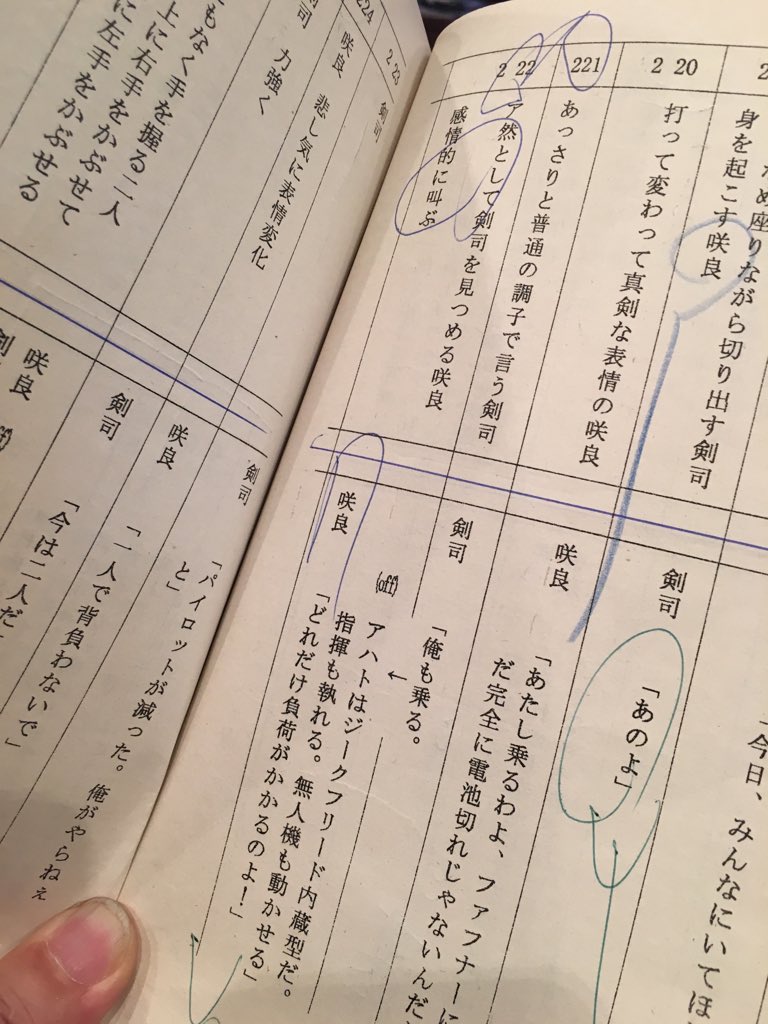 2
め座りながら切り出す剣司
身を起こす咲良
2 20
打って変わって真剣な表情の咲良
221
あっさりと普通の調子で言う剣司
2 22
ア然として剣司を見つめる咲良
感情的に叫ぶ
「今日、みんなにいてほ
剣司
「あのよ」
咲良
「あたし乗るわよ、ファフナーに
だ完全に電池切れじゃないんだ
剣司
「俺も乗る。
←
(off)
アハトはジークフリード内蔵型だ。
指揮も執れる。無人機も動かせる」
咲良
「どれだけ負荷がかかるのよ！」
2 23
剣司
咲良 悲し気に表情変化
224
剣司 力強く
もなく手を握る二人
上に右手をかぶせて
に左手をかぶせる
剣司
「パイロットが減った。俺がやらねぇ
と」
咲良
「一人で背負わないで」
剣司
「今は二人だ
咲良